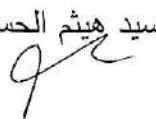 سيد هيثم الحس